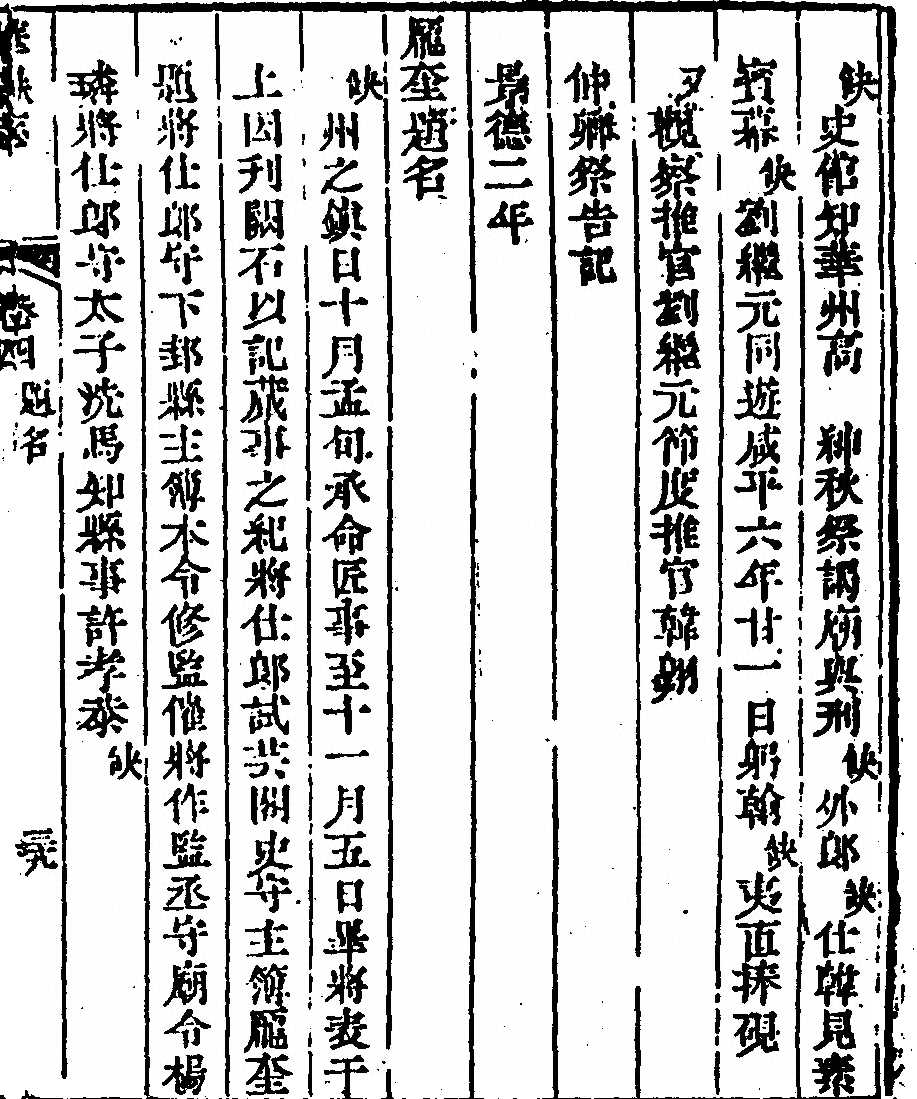 缺史館知華州高　紳秋祭謁廟與刑缺外郎缺仕韓見素
寶霖缺劉繼元同遊咸平六年廿一日躬翰缺吏直捧硯
觀察推官劉繼元節度推官韓翃
仲卿祭告記
景德二年
龎奎題名
缺州之鎮日十月孟旬承命匠事至十一月五日畢將表于
上因刋闕石以記葳事之紀將仕郎試芸閣史守主簿龎奎
題將仕郎守下邽縣主簿本令修監催將作監丞守廟令楊
璘將仕郎守太子洗馬知縣事許孝恭缺
卷四
題名